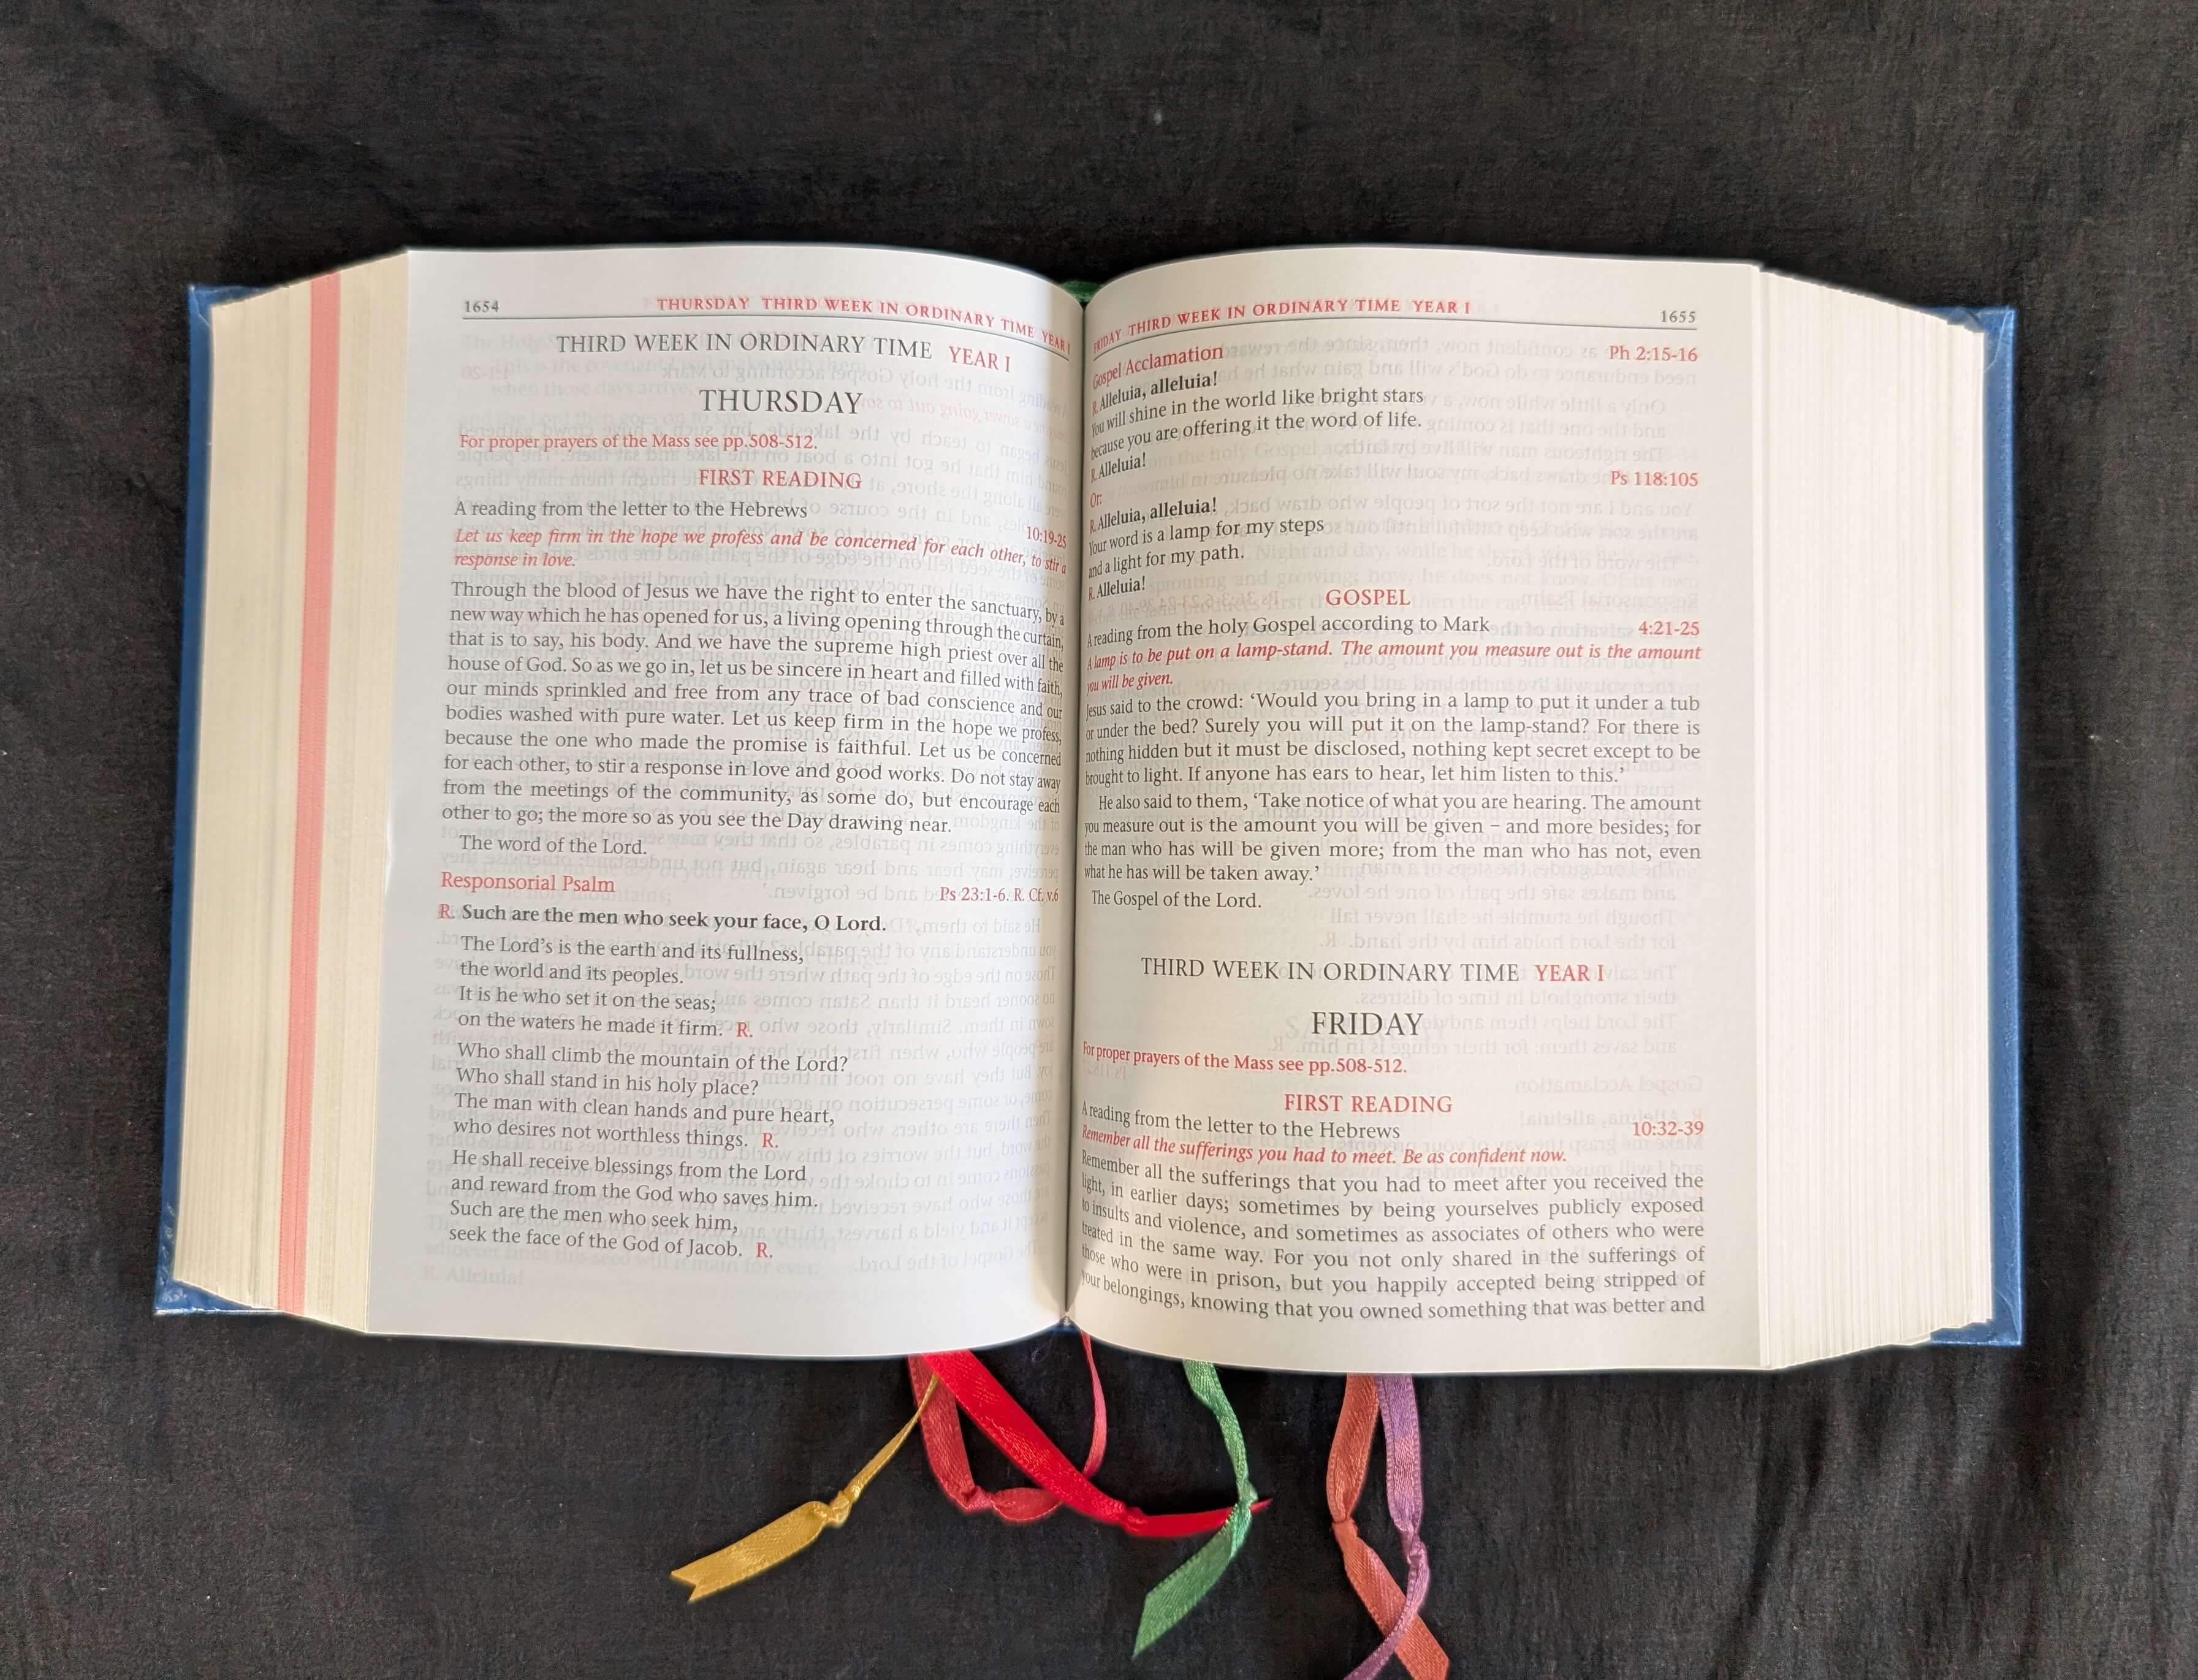 1654 THURSDAY THIRD WEEK IN ORDINARY TIME YEAR I
THIRD WEEK IN ORDINARY TIME YEAR I
THURSDAY
For proper prayers of the Mass see pp.508-512.
FIRST READING
A reading from the letter to the Hebrews 10:19-25
Let us keep firm in the hope we profess and be concerned for each other, to stir a
response in love.
Through the blood of Jesus we have the right to enter the sanctuary, by a
new way which he has opened for us, a living opening through the curtain,
that is to say, his body. And we have the supreme high priest over all the
house of God. So as we go in, let us be sincere in heart and filled with faith,
our minds sprinkled and free from any trace of bad conscience and our
bodies washed with pure water. Let us keep firm in the hope we profess,
because the one who made the promise is faithful. Let us be concerned
for each other, to stir a response in love and good works. Do not stay away
from the meetings of the community, as some do, but encourage each
other to go; the more so as you see the Day drawing near.
The word of the Lord.
Responsorial Psalm Ps 23:1-6. R. Cf. v.6
R. Such are the men who seek your face, O Lord.
The Lord's is the earth and its fullness,
the world and its peoples.
It is he who set it on the seas;
on the waters he made it firm. R.
Who shall climb the mountain of the Lord?
Who shall stand in his holy place?
The man with clean hands and pure heart,
who desires not worthless things. R.
He shall receive blessings from the Lord
and reward from the God who saves him.
Such are the men who seek him,
seek the face of the God of Jacob. R.
FRIDAY THIRD WEEK IN ORDINARY TIME YEAR I 1655
Gospel Acclamation Ph 2:15-16
R. Alleluia, alleluia!
You will shine in the world like bright stars
because you are offering it the word of life.
R. Alleluia!
Or: Ps 118:105
R. Alleluia, alleluia!
Your word is a lamp for my steps
and a light for my path.
R. Alleluia!
GOSPEL
A reading from the holy Gospel according to Mark 4:21-25
A lamp is to be put on a lamp-stand. The amount you measure out is the amount
you will be given.
Jesus said to the crowd: ‘Would you bring in a lamp to put it under a tub
or under the bed? Surely you will put it on the lamp-stand? For there is
nothing hidden but it must be disclosed, nothing kept secret except to be
brought to light. If anyone has ears to hear, let him listen to this.’
He also said to them, ‘Take notice of what you are hearing. The amount
you measure out is the amount you will be given – and more besides; for
the man who has will be given more; from the man who has not, even
what he has will be taken away.’
The Gospel of the Lord.
THIRD WEEK IN ORDINARY TIME YEAR I
FRIDAY
For proper prayers of the Mass see pp.508-512.
FIRST READING
A reading from the letter to the Hebrews 10:32-39
Remember all the sufferings you had to meet. Be as confident now.
Remember all the sufferings that you had to meet after you received the
light, in earlier days; sometimes by being yourselves publicly exposed
to insults and violence, and sometimes as associates of others who were
treated in the same way. For you not only shared in the sufferings of
those who were in prison, but you happily accepted being stripped of
your belongings, knowing that you owned something that was better and